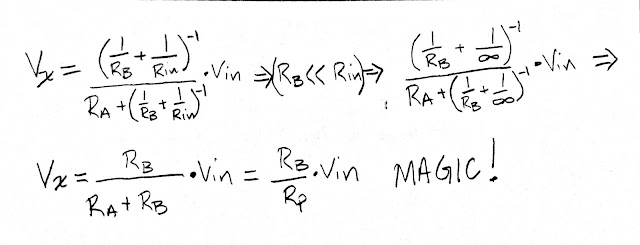 Vx = (1/RB + 1/Rin)^-1 / (RA + (1/RB + 1/Rin)^-1) · Vin ⇒ (RB << Rin) ⇒ (1/RB + 1/∞)^-1 / (RA + (1/RB + 1/∞)^-1) · Vin ⇒
Vx = RB / (RA + RB) · Vin = RB / Rp · Vin MAGIC!